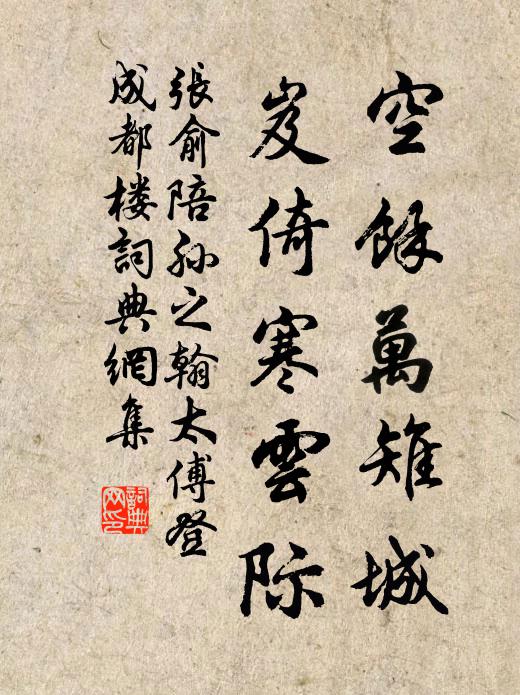 空餘萬雉城
岌倚寒雲际
張俞陪孙之翰太傅登
成都楼詞典網集
詞典网印